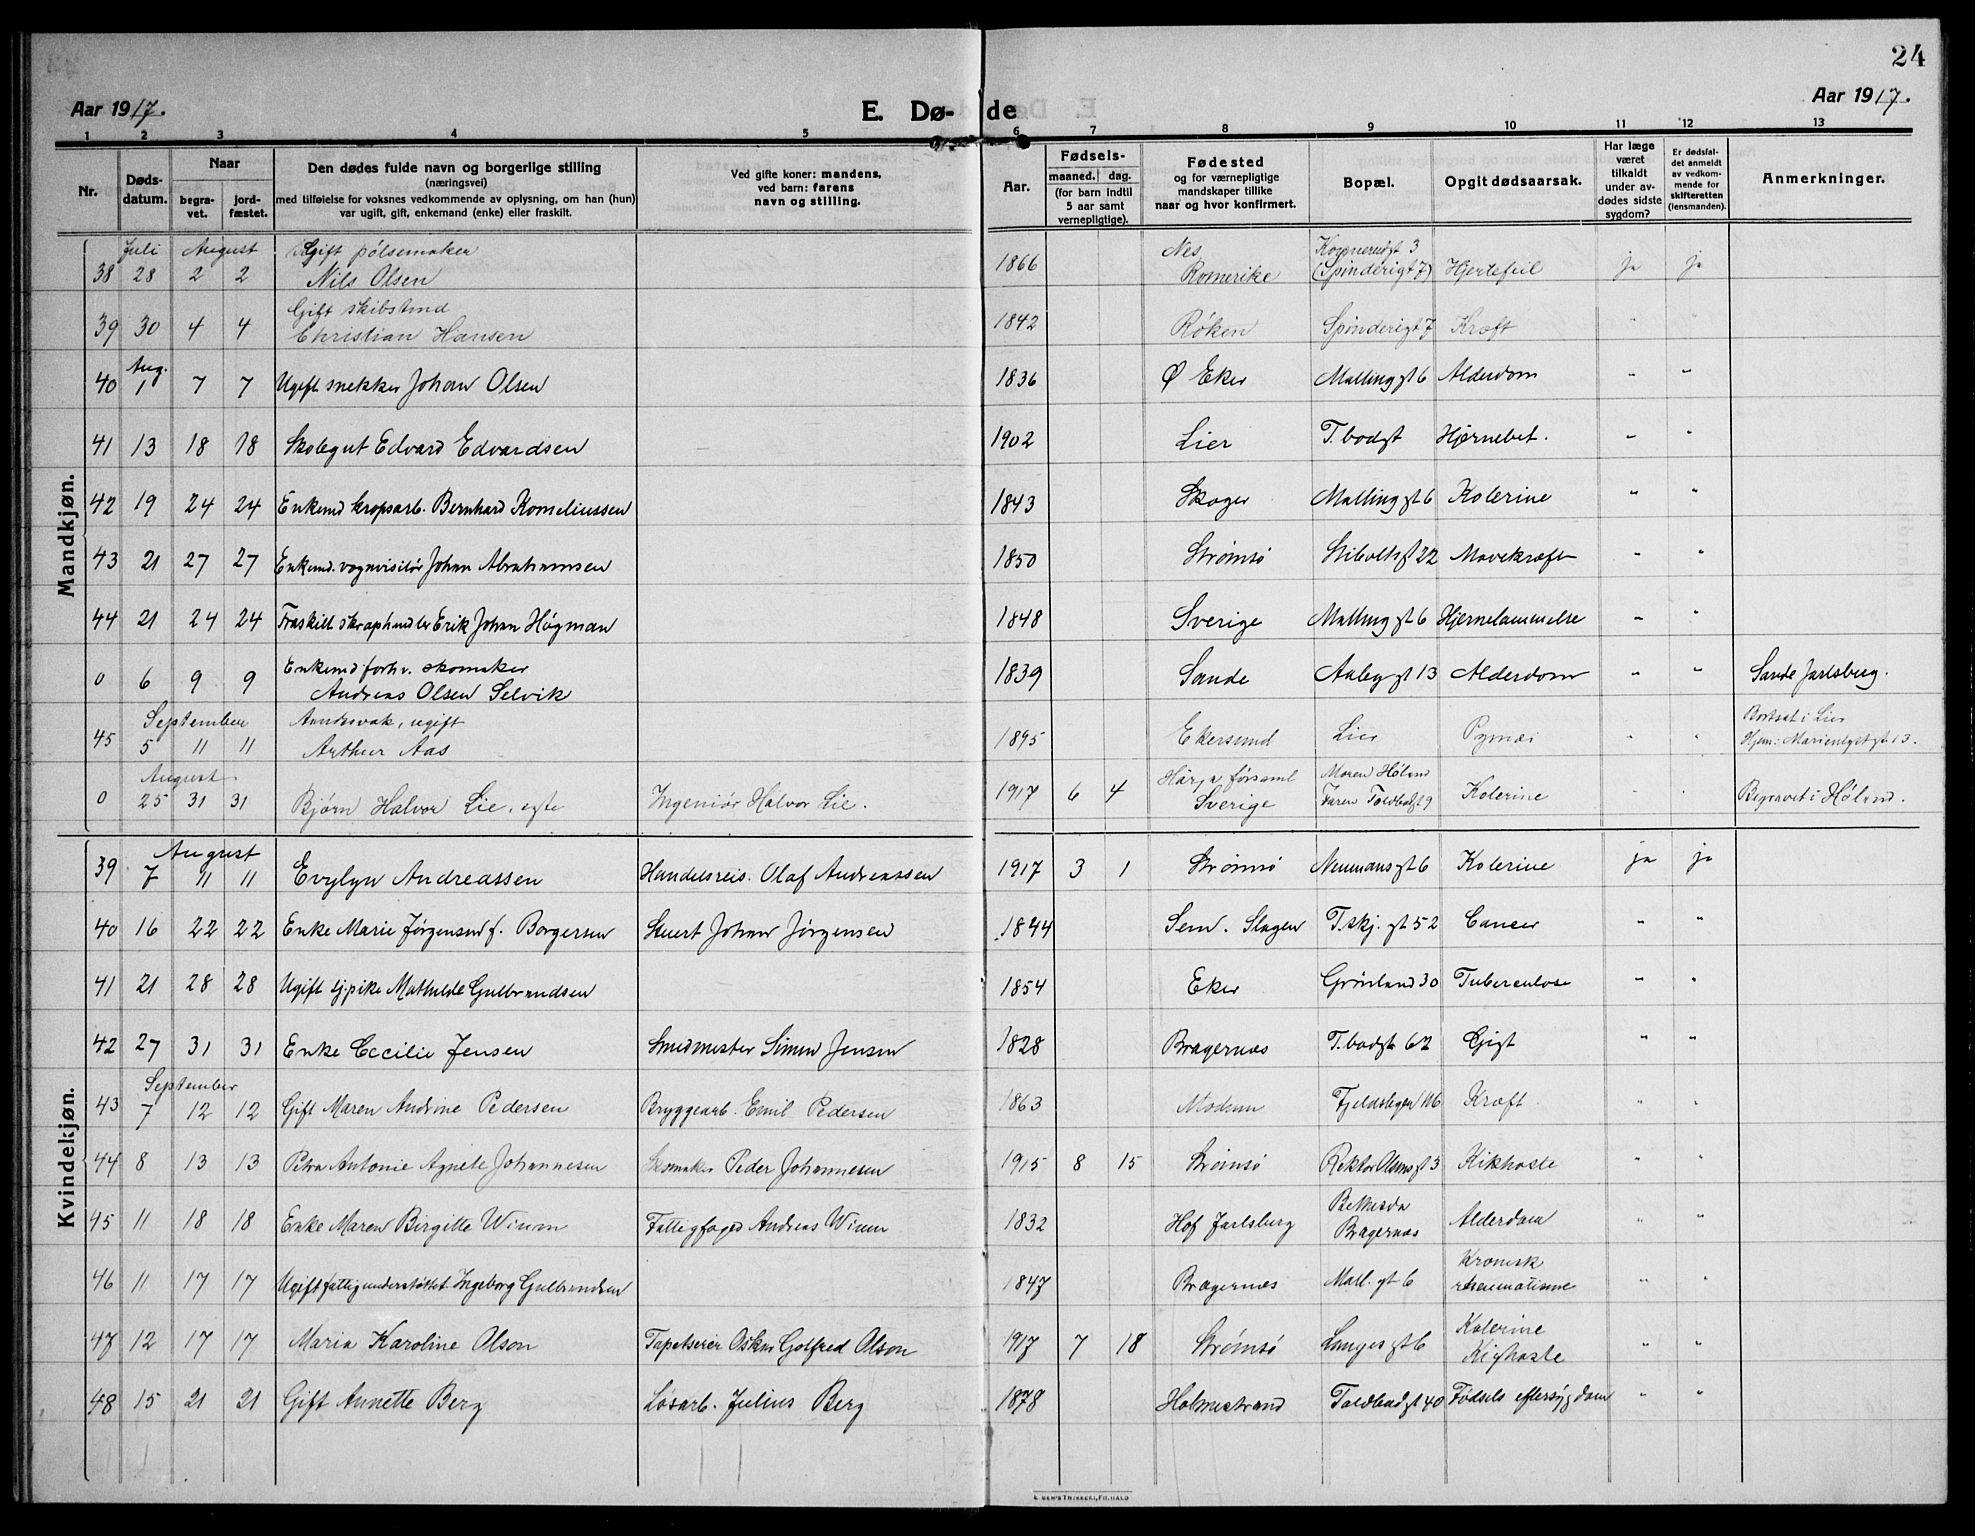 24
Aar 1917.
E. Dø-
de
Aar 1917.
1 2 3 4 5 6 7 8 9 10 11 12 13
Nr.
Døds-
datum.
Naar
begra-
vet.
jord-
fæstet.
Den dødes fulde navn og borgerlige stilling
(næringsvei)
med tilføielse for voksnes vedkommende av oplysning, om han (hun)
var ugift, gift, enkemand (enke) eller fraskilt.
Ved gifte koner: mandens,
ved barn: farens
navn og stilling.
Aar.
Fødsels-
maaned. dag.
(for barn indtil
5 aar samt
vernepligtige).
Fødested
og for værnepligtige
mandskaper tillike
naar og hvor konfirmert.
Bopæl.
Opgit dødsaarsak.
Har læge
været
tilkaldt
under av-
dødes sidste
sygdom?
Er dødsfal-
det anmeldt
av vedkom-
mende for
skifteretten
(lensmanden).
Anmerkninger.
Mandkjøn.
Juli August Gift pølsemaker Nes
38 28 2 2 Nils Olsen 1866 Romerike (Spinderigt 7) Hjertefeil ja ja
Gift skibstmd
39 30 4 4 Christian Hansen 1842 Røken Spinderigt 7 Kræft " "
Aug.
40 1 7 7 Ugift snekker Johan Olsen 1836 Ø Eker Malling gt 6 Alderdom " "
41 13 18 18 Skolegut Edvard Edvardsen 1902 Lier T.bodgt Hjernebet. " "
42 19 24 24 Enkemd kropsarb. Bernhard Korneliussen 1843 Skoger Malling gt 6 Kolerine " "
43 21 27 27 Enkemd. vognvisitør Johan Abrahamsen 1850 Strømsø 22 Mavekræft " "
44 21 24 24 Fraskilt skraphandler Erik Johan Høgman 1848 Sverige Malling gt 6 Hjernelammelse " "
Enkemd forhv. skomaker
0 6 9 9 Andreas Olsen Selvik 1839 Sande Aaby gt 13 Alderdom " " Sande Jarlsberg.
September ugift Bortsat i Lier
45 5 11 11 Arthur Aas 1895 Ekersund Lier " " Hjem: Marienlystgt 13.
August. Maren Høland
0 25 31 31 Bjørn Halvor Lie, egte Ingeniør Halvor Lie. 1917 6 4 Sverige Faren Toldbodgt 9 Kolerine " " Begravet i Høland.
Kvindekjøn.
August
39 7 11 11 Evylyn Andreassen Handelsreis. Olaf Andreassen 1917 3 1 Strømsø Neumans gt 6 Kolerine ja ja
40 16 22 22 Enke Marie Jørgensen f. Borgersen Stuert Johan Jørgensen 1844 Sem. Slagen T.skj. gt 52 Cancer " "
41 21 28 28 Ugift tj.pike Mathilde Gulbrandsen 1854 Eker Grønland 30 Tuberculose " "
42 27 31 31 Enke Cecilie Jensen Smedmester Simen Jensen 1828 Bragernæs T.bodgt 62 Gigt " "
September
43 7 12 12 Gift Maren Andrine Pedersen Bryggearb. Emil Pedersen 1863 Modum Kræft " "
44 8 13 13 Petra Antonie Agnete Johannesen Skomaker Peder Johannesen 1915 8 15 Strømsø Rektor Olsens gt 3 Kikhoste " "
Bethesda
45 11 18 18 Enke Maren Birgitte Winum Fattigfoged Andreas Winum 1832 Hof Jarlsberg Bragernæs Alderdom " "
Kronisk
46 11 17 17 Ugift fattigunderstøttet Ingeborg Gulbrandsen 1847 Bragernæs Mall. gt 6 rheumatisme " "
Kolerine
47 12 17 17 Maria Karoline Olson Tapetserer Oskar Gotfred Olson 1917 7 18 Strømsø Langes gt 6 Kighoste " "
48 15 21 21 Gift Annette Berg Løsarb. Julius Berg 1878 Holmestrand Toldbodgt 40 Fødsels eftersygdom " "